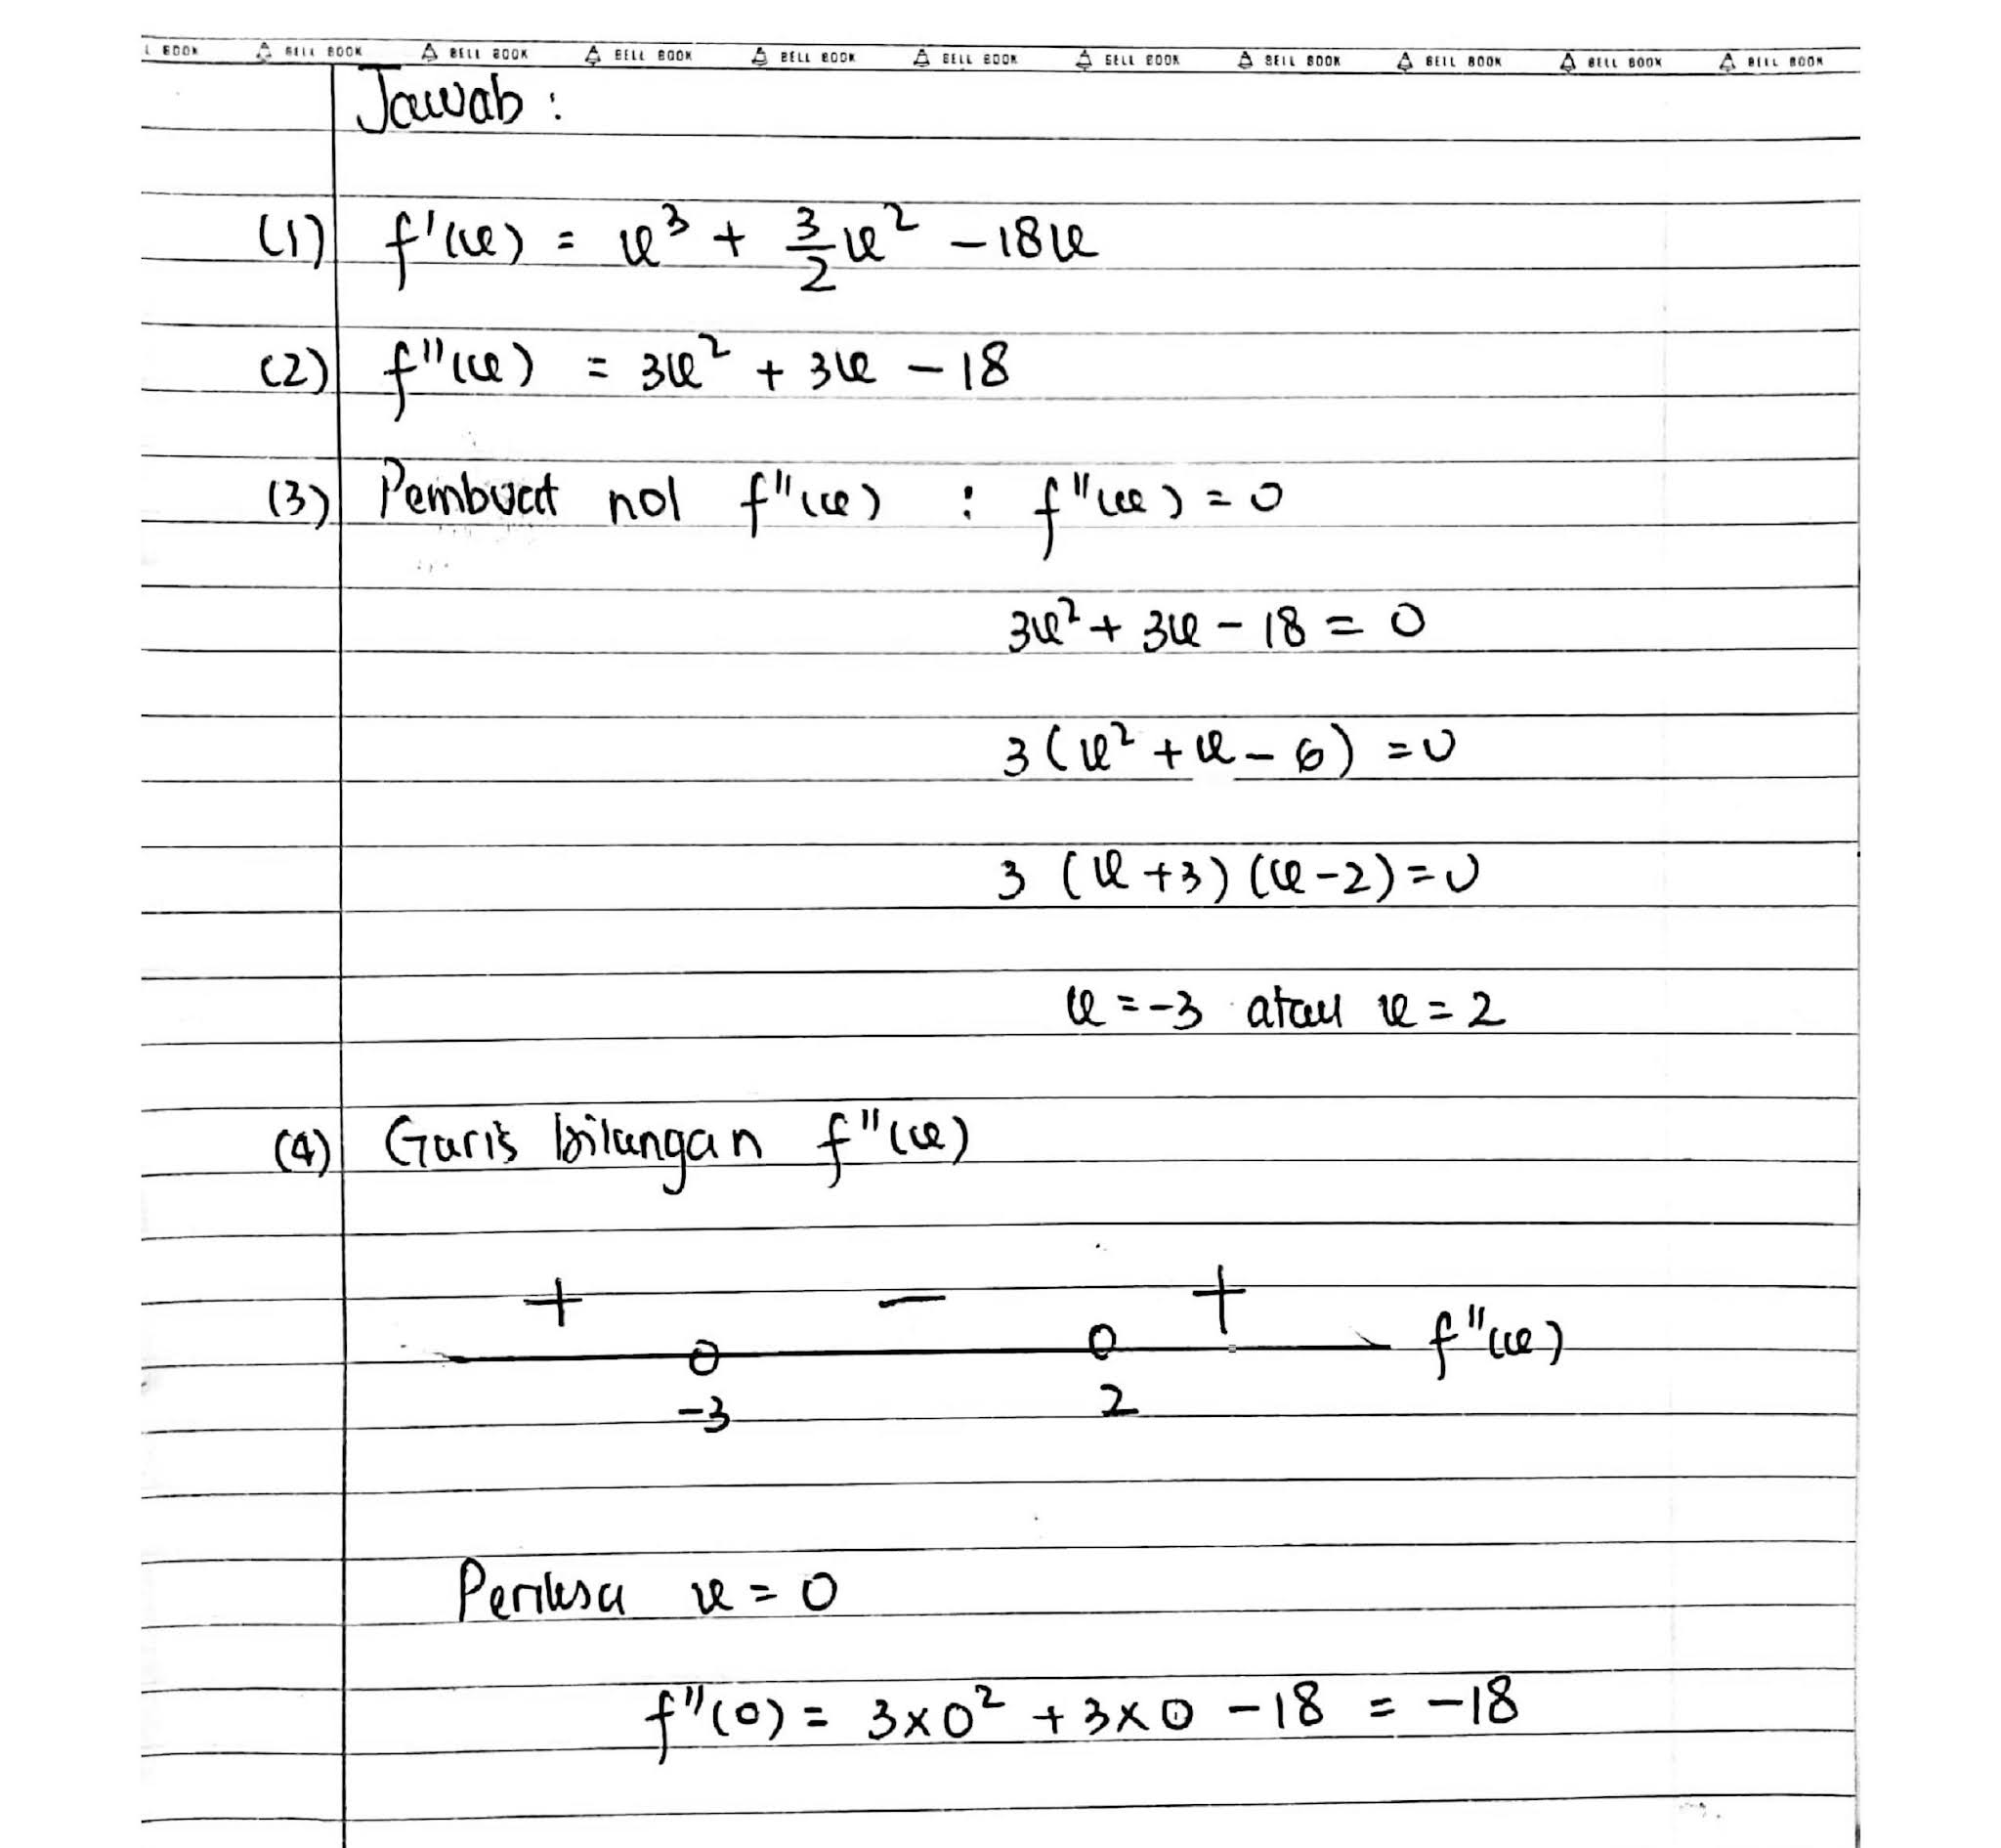 L BOOK BELL BOOK BELL BOOK BELL BOOK BELL BOOK BELL BOOK BELL BOOK BELL BOOK BELL BOOK BELL BOOK BELL BOOK
Jawab :
(1) f'(x) = x³ + 3/2 x² - 18x
(2) f''(x) = 3x² + 3x - 18
(3) Pembuat nol f''(x) : f''(x) = 0
3x² + 3x - 18 = 0
3 (x² + x - 6) = 0
3 (x + 3) (x - 2) = 0
x = -3 atau x = 2
(4) Garis bilangan f''(x)
+ - +
f''(x)
-3 2
Periksa x = 0
f''(0) = 3 x 0² + 3 x 0 - 18 = -18